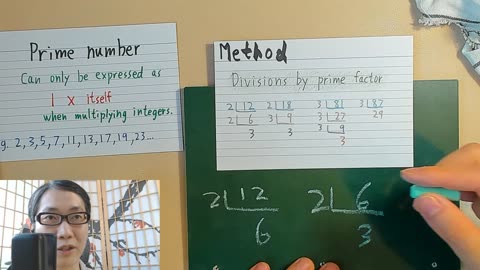 Prime number
Can only be expressed as
1 x itself
when multiplying integers.
g. 2, 3, 5, 7, 11, 13, 17, 19, 23...
Method
Divisions by prime factor
2 12 2 18 3 81 3 87
2 6 3 9 3 27 29
3 3 3 9
3
2 12 2 6
6 3